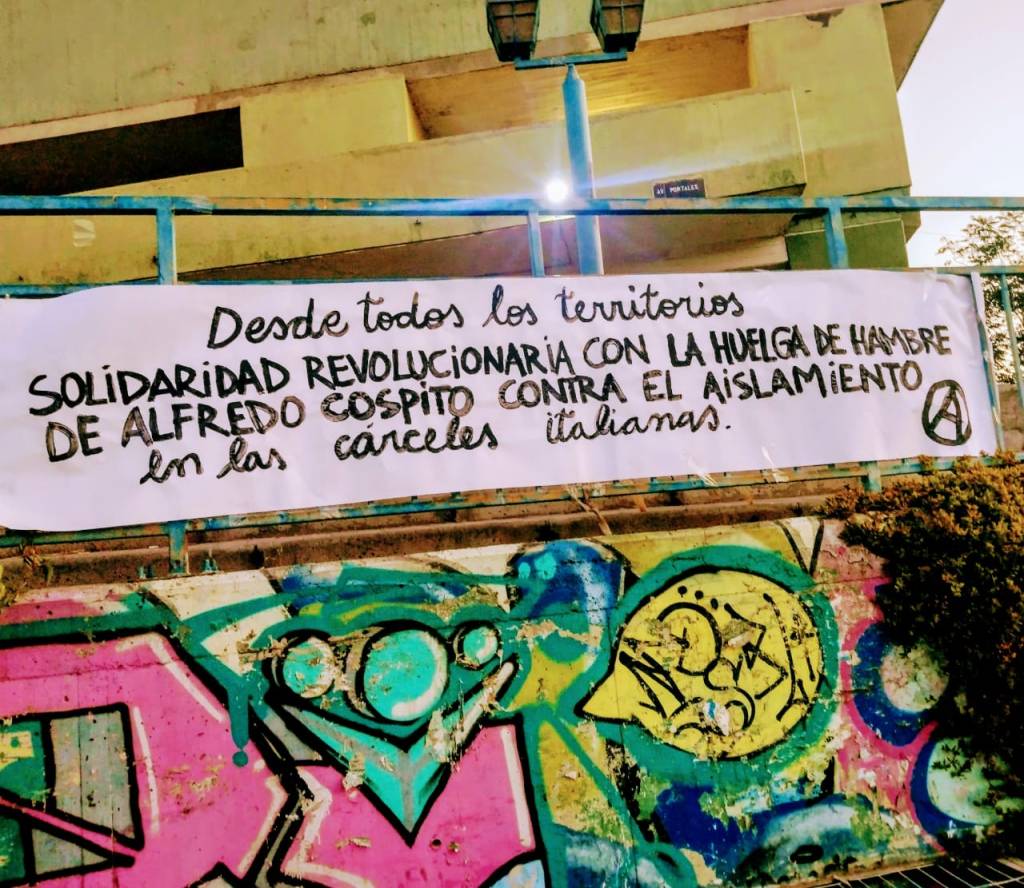 AV PORTALES
Desde todos los territorios
SOLiDARiDAD REVOLUCiONARiA CON LA HUELGA DE HAMBRE
DE ALFREDO COSPITO CONTRA EL AiSLAMiENTO
en las cárceles italianas.